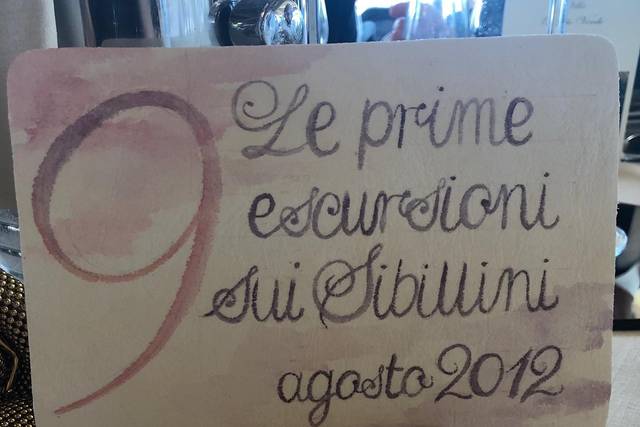 9
Le prime
escursioni
sui Sibillini
agosto 2012